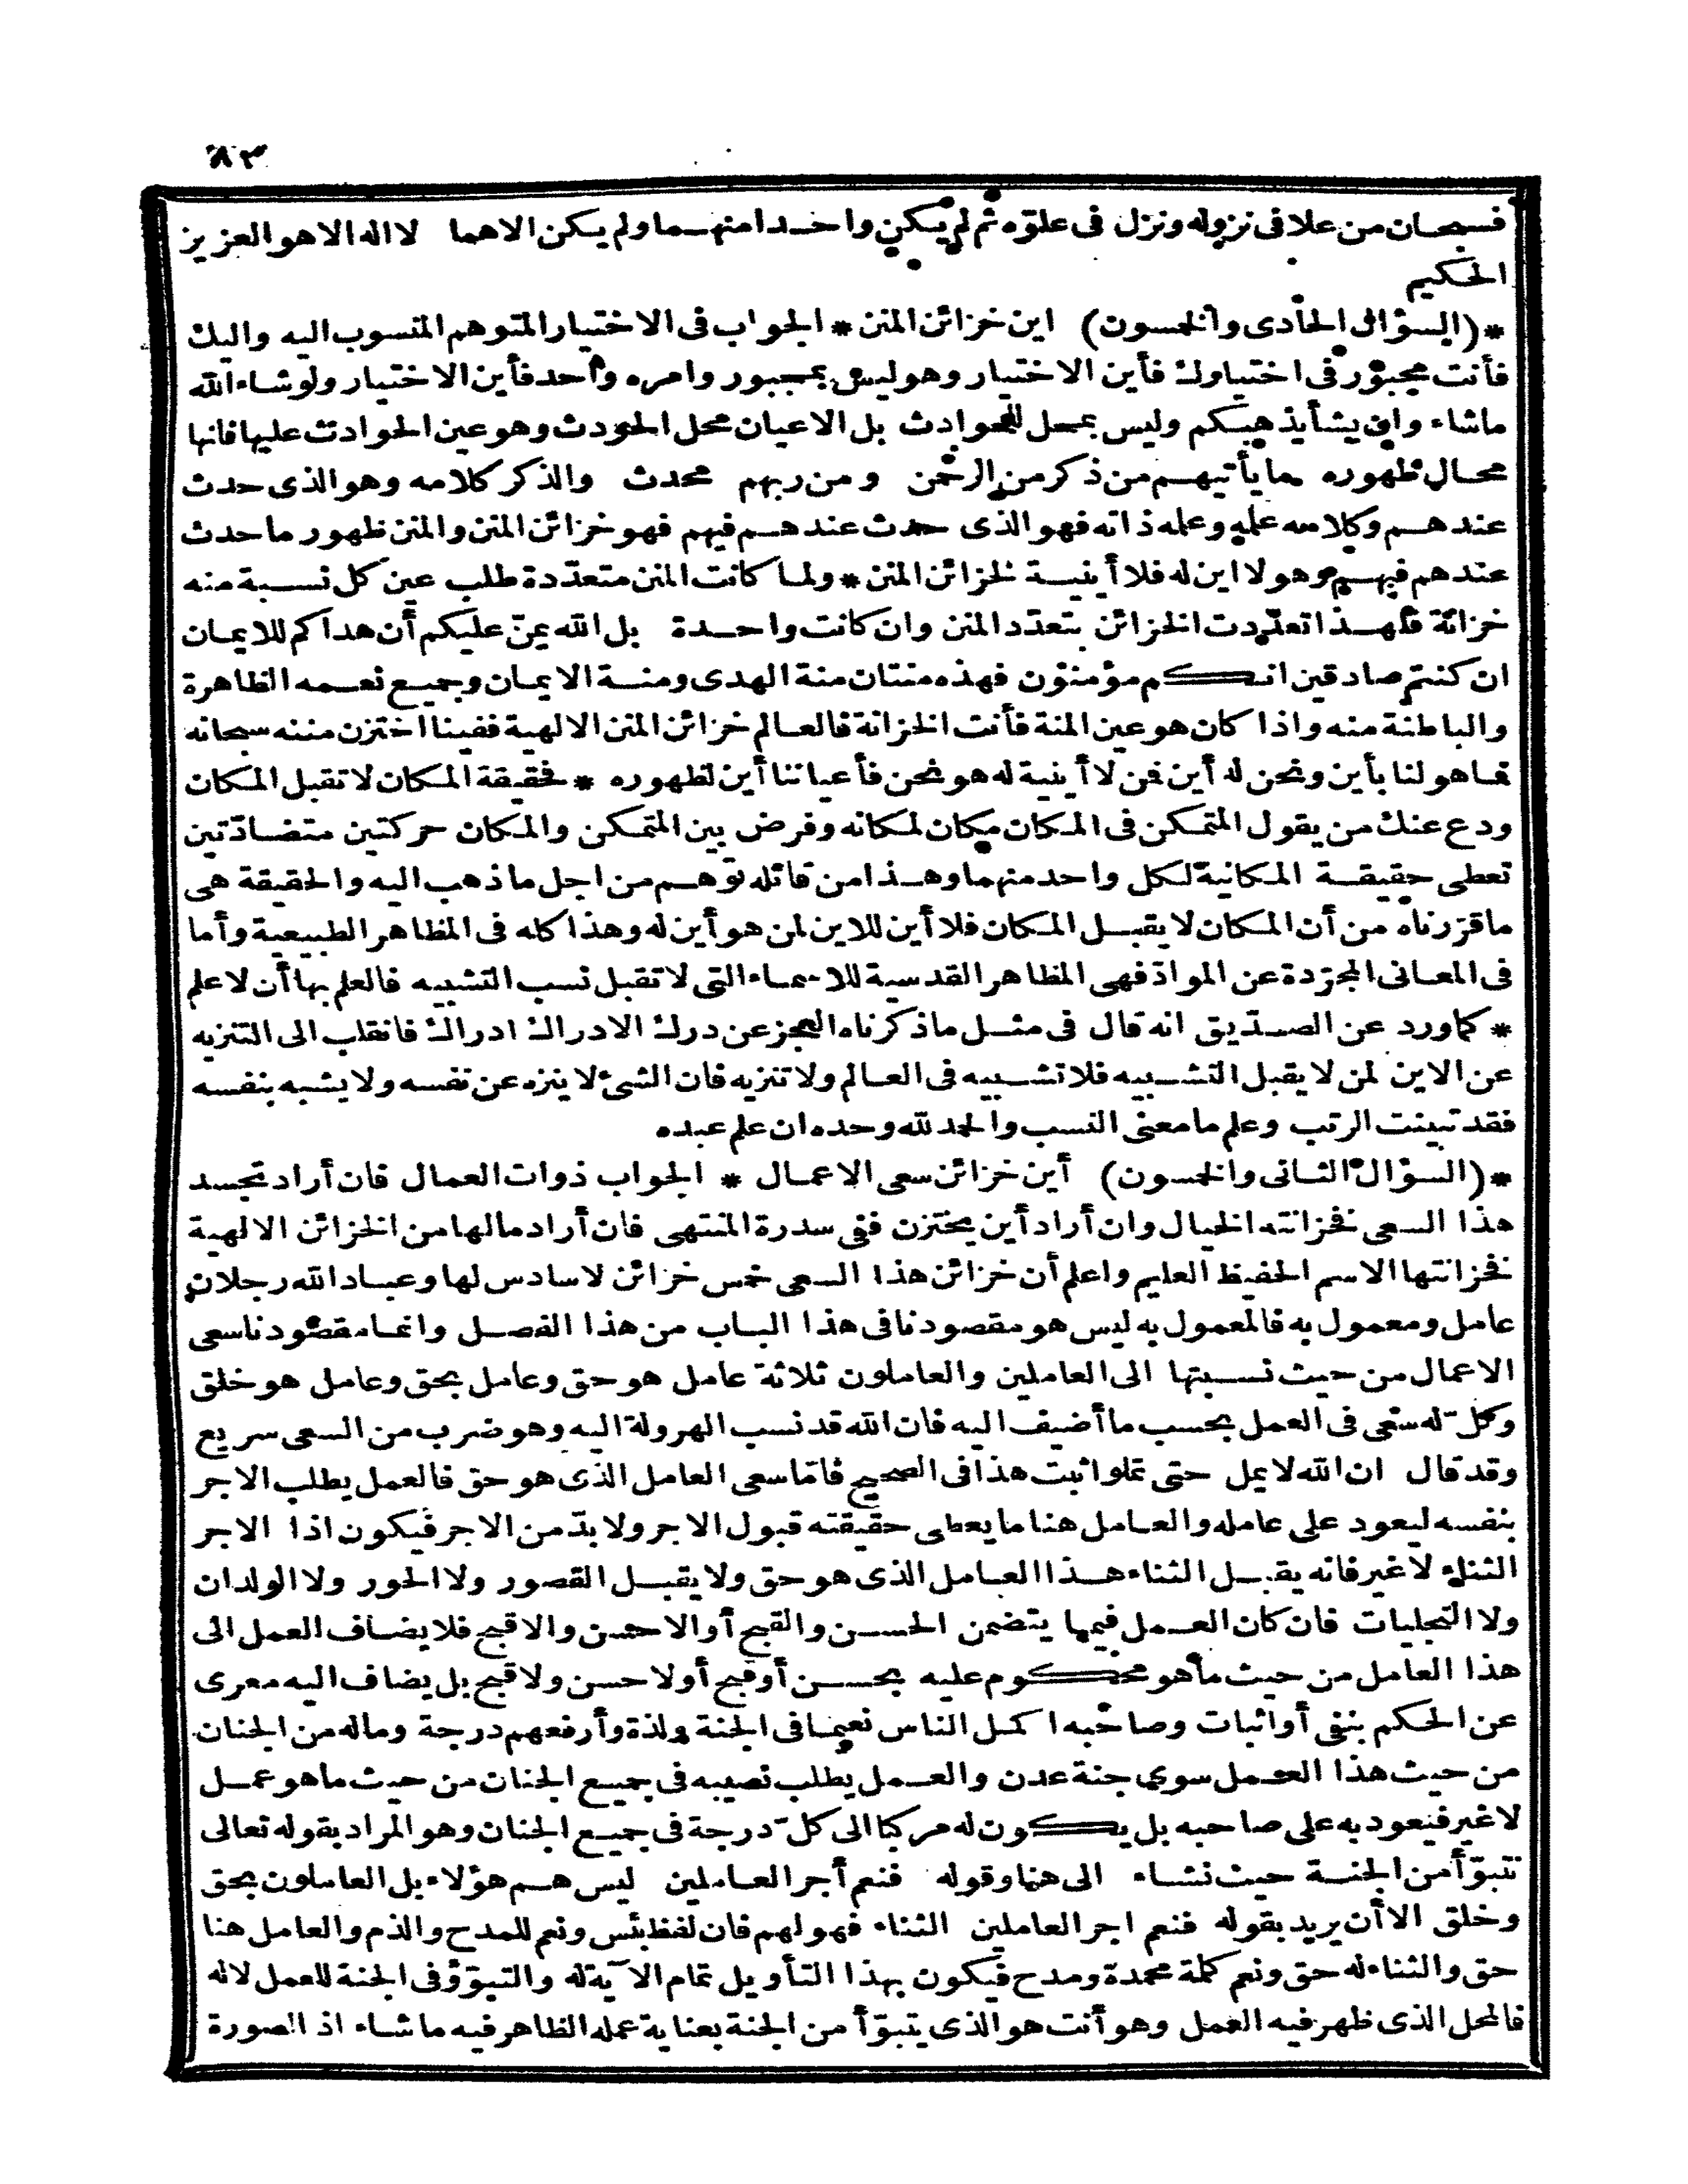 ٨٣
فسبحان من علا فى نزوله ونزل فى علوّه ثم لم يكن واحدا منهما ولم يكن الا هما لا اله الا هو العزيز
الحكيم
*(السؤال الحادى والخمسون) اين خزائن المنن * الجواب فى الاختيار المتوهم المنسوب اليه واليك
فأنت مجبور فى اختيارك فأين الاختيار وهو ليس بمجبور وامره واحد فأين الاختيار ولو شاء الله
ما شاء وان يشأ يذهبكم وليس بمحل للحوادث بل الاعيان محل الحوادث وهو عين الحوادث عليها فانها
محال ظهوره ما يأتيهم من ذكر من الرحمن ومن ربهم محدث والذكر كلامه وهو الذى حدث
عندهم وكلامه علمه وعلمه ذاته فهو الذى حدث عندهم فيهم فهو خزائن المنن والمنن ظهور ما حدث
عندهم فيهم وهو لا اين له فلا أينية لخزائن المنن * ولما كانت المنن متعدّدة طلب عين كل نسبة منه
خزانة فلهذا تعدّدت الخزائن بتعدّد المنن وان كانت واحدة بل الله يمنّ عليكم أن هداكم للايمان
ان كنتم صادقين انكم مؤمنون فهذه منتان منة الهدى ومنة الايمان وجميع نعمه الظاهرة
والباطنة منه واذا كان هو عين المنة فأنت الخزانة فالعالم خزائن المنن الالهية ففينا اختزن مننه سبحانه
فما هو لنا بأين ونحن له أين فمن لا أينية له هو نحن فأعياننا أين لظهوره * فحقيقة المكان لا تقبل المكان
ودع عنك من يقول المتمكن فى المكان مكان لمكانه وفرض بين المتمكن والمكان حركتين متضادّتين
تعطى حقيقة المكانية لكل واحد منهما وهذا من قائله توهم من اجل ما ذهب اليه والحقيقة هى
ما قرّرناه من أن المكان لا يقبل المكان فلا أين للاين لمن هو أين له وهذا كله فى المظاهر الطبيعية وأما
فى المعانى المجرّدة عن الموادّ فهى المظاهر القدسية للاسماء التى لا تقبل نسب التشبيه فالعلم بها أن لا علم
* كما ورد عن الصدّيق انه قال فى مثل ما ذكرناه العجز عن درك الادراك ادراك فانقلب الى التنزيه
عن الاين لمن لا يقبل التشبيه فلا تشبيه فى العالم ولا تنزيه فان الشئ لا ينزه عن نفسه ولا يشبه بنفسه
فقد تبينت الرتب وعلم ما معنى النسب والحمد لله وحده ان علم عبده
*(السؤال الثانى والخمسون) أين خزائن سعى الاعمال * الجواب ذوات العمال فان أراد تجسد
هذا السعى فخزانته الخيال وان أراد أين يختزن ففى سدرة المنتهى فان أراد ما لها من الخزائن الالهية
فخزانتها الاسم الحفيظ العليم واعلم أن خزائن هذا السعى خمس خزائن لا سادس لها وعباد الله رجلان
عامل ومعمول به فالمعمول به ليس هو مقصودنا فى هذا الباب من هذا الفصل وانما مقصودنا سعى
الاعمال من حيث نسبتها الى العاملين والعاملون ثلاثة عامل هو حق وعامل بحق وعامل هو خلق
وكلّ له سعى فى العمل بحسب ما أضيف اليه فان الله قد نسب الهرولة اليه وهو ضرب من السعى سريع
وقد قال ان الله لا يمل حتى تملوا ثبت هذا فى الصحيح فامّا سعى العامل الذى هو حق فالعمل يطلب الاجر
بنفسه ليعود على عامله والعامل هنا ما يعطى حقيقته قبول الاجر ولا بدّ من الاجر فيكون اذا الاجر
الثناء لا غير فانه يقبل الثناء هذا العامل الذى هو حق ولا يقبل القصور ولا الحور ولا الولدان
ولا التجليات فان كان العمل فيما يتضمن الحسن والقبح أو الاحسن والاقبح فلا يضاف العمل الى
هذا العامل من حيث ما هو محكوم عليه بحسن أو قبح أو لا حسن ولا قبح بل يضاف اليه معرى
عن الحكم بنفى أو اثبات وصاحبه اكمل الناس نعيما فى الجنة ولذة وأرفعهم درجة وماله من الجنان
من حيث هذا العمل سوى جنة عدن والعمل يطلب نصيبه فى جميع الجنان من حيث ما هو عمل
لا غير فيعود به على صاحبه بل يكون له مركبا الى كلّ درجة فى جميع الجنان وهو المراد بقوله تعالى
نتبوّأ من الجنة حيث نشاء الى هنا وقوله فنعم أجر العاملين ليس هم هؤلاء بل العاملون بحق
وخلق الا أن يريد بقوله فنعم اجر العاملين الثناء فهو لهم فان لفظ بئس ونعم للمدح والذم والعامل هنا
حق والثناء له حق ونعم كلمة محمدة ومدح فيكون بهذا التأويل تمام الآية له والتبوّؤ فى الجنة للعمل لانه
فالمحل الذى ظهر فيه العمل وهو أنت هو الذى يتبوّأ من الجنة بعناية عمله الظاهر فيه ما شاء اذ الصورة